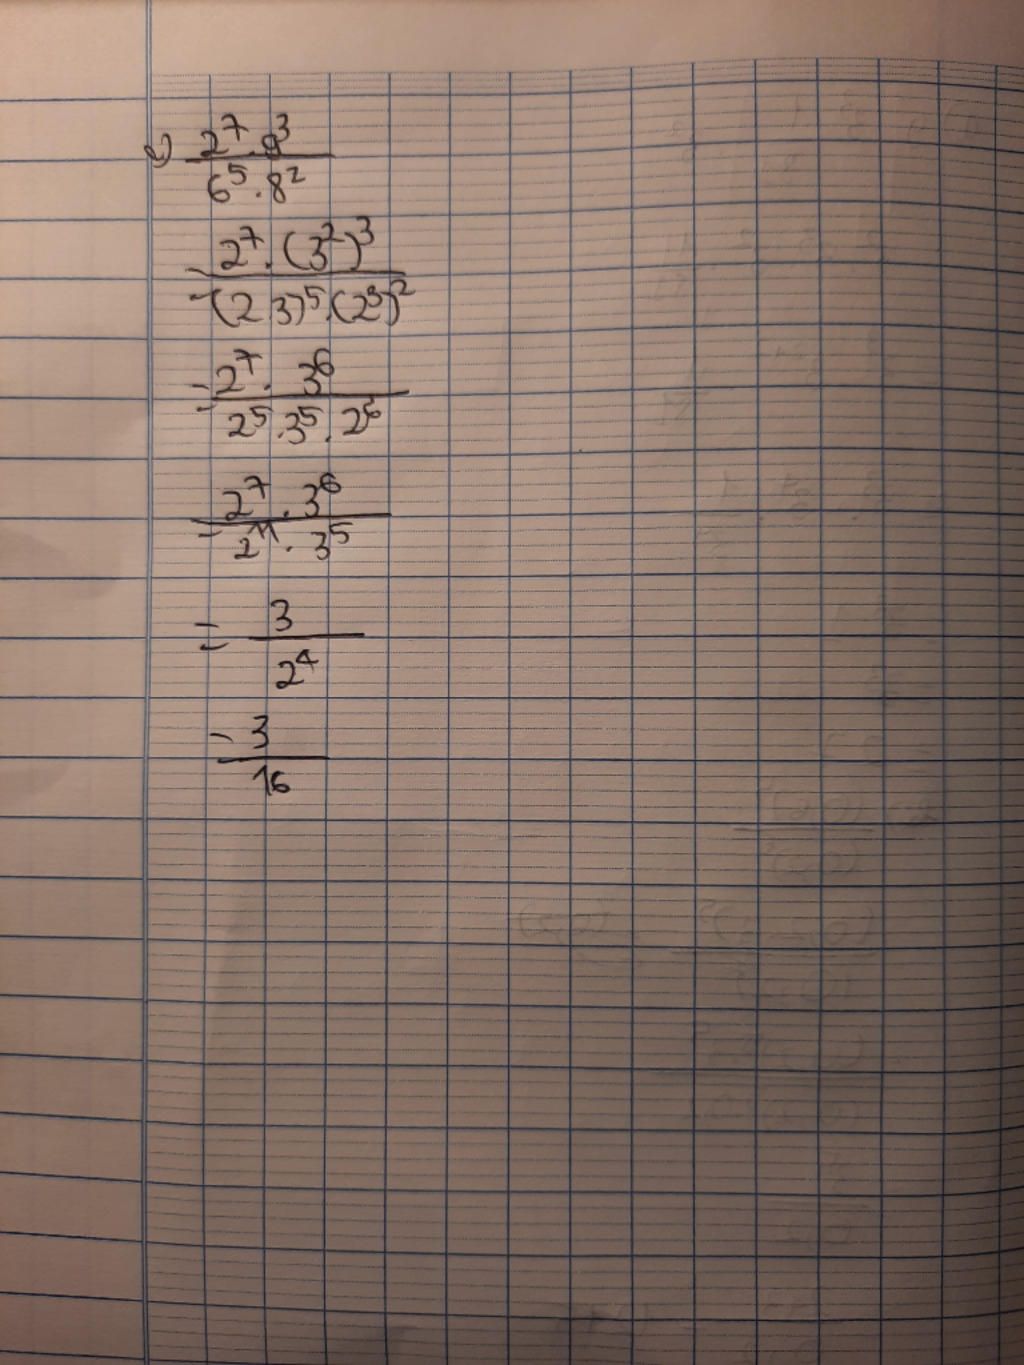 c) 2⁷ . 9³
6⁵ . 8²
= 2⁷ . (3²)³
(2 3)⁵ . (2³)²
= 2⁷ . 3⁶
2⁵ . 3⁵ . 2⁶
= 2⁷ . 3⁶
2¹¹ . 3⁵
= 3
2⁴
= 3
16